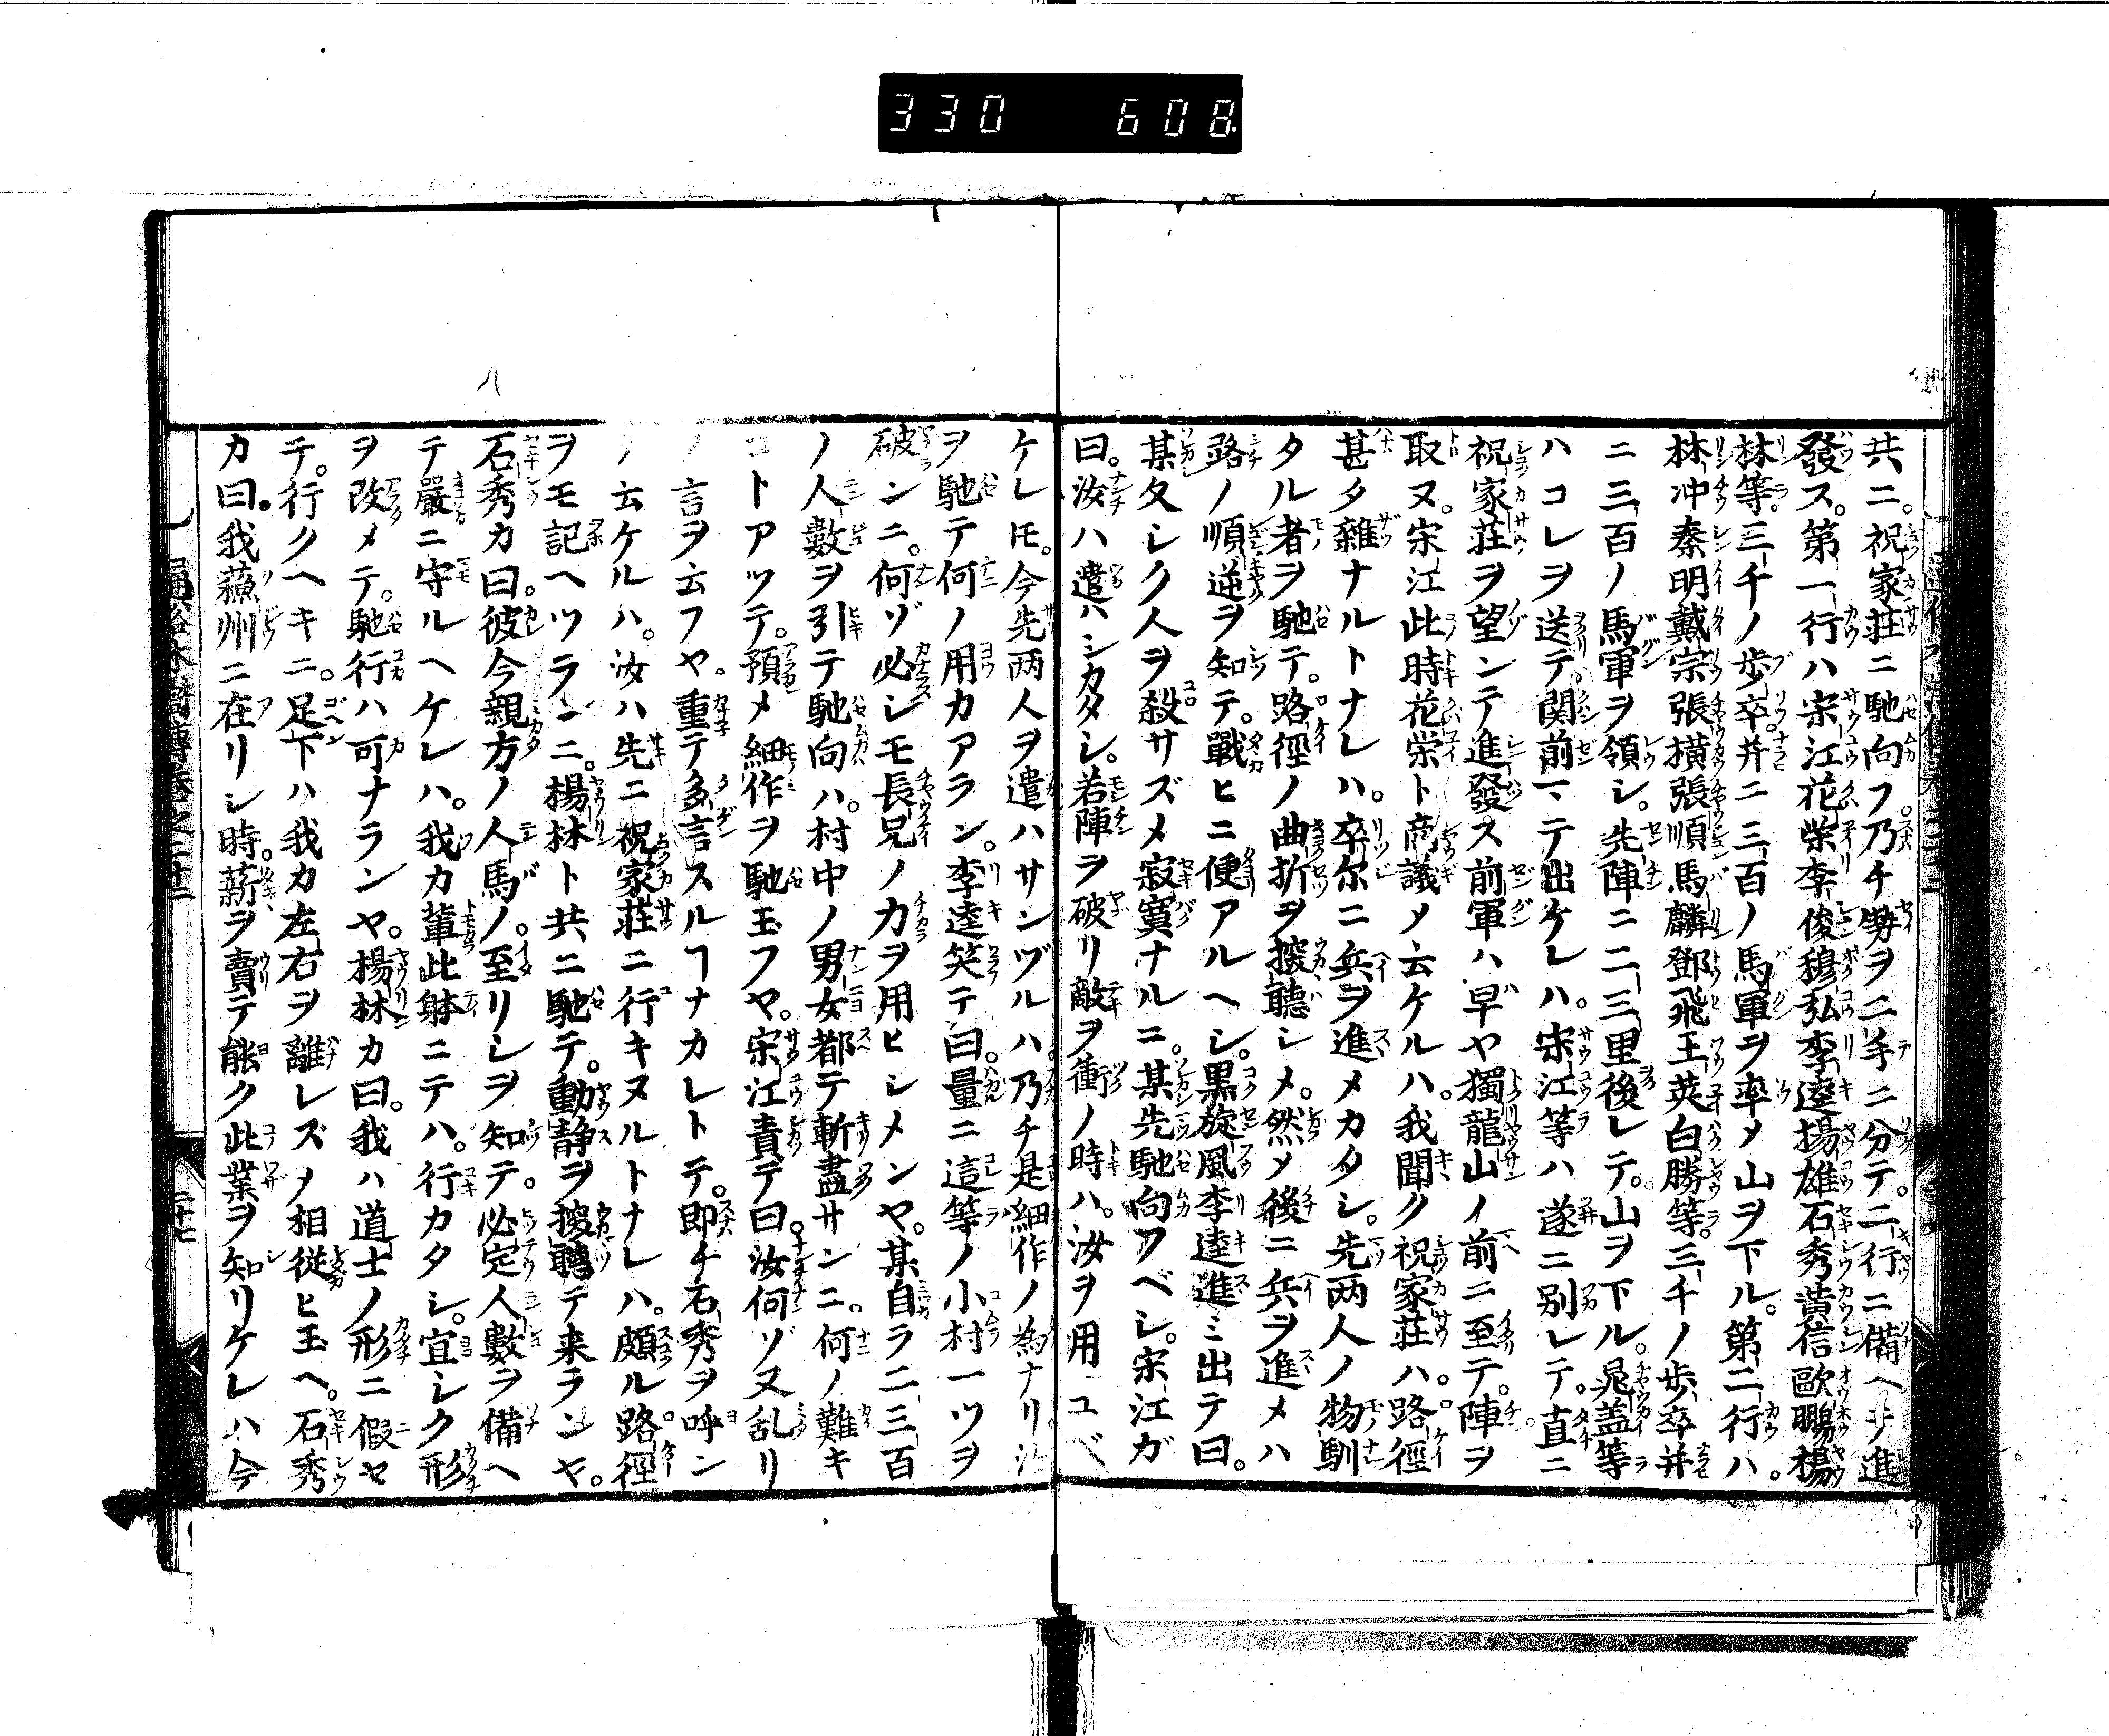 330 608
共ニ。祝家莊ニ馳向フ。乃チ勢ヲ二手ニ分テ。二行ニ備ヘテ進
發ス。第一行ハ宋江花榮李俊穆弘李逵楊雄石秀黄信歐鵬楊
林等。三千ノ歩卒。并ニ三百ノ馬軍ヲ率メ山ヲ下ル。第二行ハ。
林冲秦明戴宗張横張順馬麟鄧飛王英白勝等。三千ノ歩卒并
ニ三百ノ馬軍ヲ領シ。先陣ニ二三里後レテ。山ヲ下ル。晁盖等
ハコレヲ送テ関前マテ出ケレハ。宋江等ハ遂ニ別レテ。直ニ
祝家莊ヲ望ンテ進發ス前軍ハ早ヤ獨龍山ノ前ニ至テ。陣ヲ
取ヌ。宋江此時花栄ト商議メ云ケルハ。我聞ク祝家莊ハ。路徑
甚タ雜ナルトナレハ。卒尓ニ兵ヲ進メカタシ。先两人ノ物馴
タル者ヲ馳テ。路徑ノ曲折ヲ搜聽シメ。然メ後ニ兵ヲ進メハ
路ノ順逆ヲ知テ。戰ヒニ便アルヘシ。黒旋風李逵進ミ出テ曰。
某久シク人ヲ殺サズメ寂寞ナルニ。某先馳向フベシ。宋江ガ
曰。汝ハ遣ハシカタシ。若陣ヲ破リ敵ヲ衝ノ時ハ。汝ヲ用ユベ
ケレ𪜈。今先两人ヲ遣ハサンヅルハ。乃チ是細作ノ為ナリ汝
ヲ馳テ何ノ用カアラン。李逵笑テ曰。量ニ這等ノ小村一ツヲ
破ンニ。何ゾ必シモ長兄ノ力ヲ用ヒシメンヤ。某自ラ二三百
ノ人數ヲ引テ馳向ハ。村中ノ男女都テ斬盡サンニ。何ノ難キ
コトアツテ。預メ細作ヲ馳玉フヤ。宋江責テ曰。汝何ゾ又乱リ
ノ言ヲ云フヤ。重テ多言スルヿナカレトテ。即チ石秀ヲ呼ン
ノ云ケルハ。汝ハ先ニ祝家莊ニ行キヌルトナレハ。頗ル路徑
ヲモ記ヘツランニ。楊林ト共ニ馳テ。動静ヲ搜聽テ来ランヤ。
石秀カ曰。彼今親方ノ人馬ノ。至リシヲ知テ。必定人數ヲ備ヘ
テ嚴ニ守ルヘケレハ。我カ輩此躰ニテハ。行カタシ。宜シク形
ヲ改メテ。馳行ハ可ナランヤ。楊林カ曰。我ハ道士ノ形ニ假セ
テ。行クヘキニ。足下ハ我カ左右ヲ離レズメ相從ヒ玉ヘ。石秀
カ曰。我蘓州ニ在リシ時。薪ヲ賣テ能ク此業ヲ知リケレハ今
通俗水滸傳巻之二十二 二十七